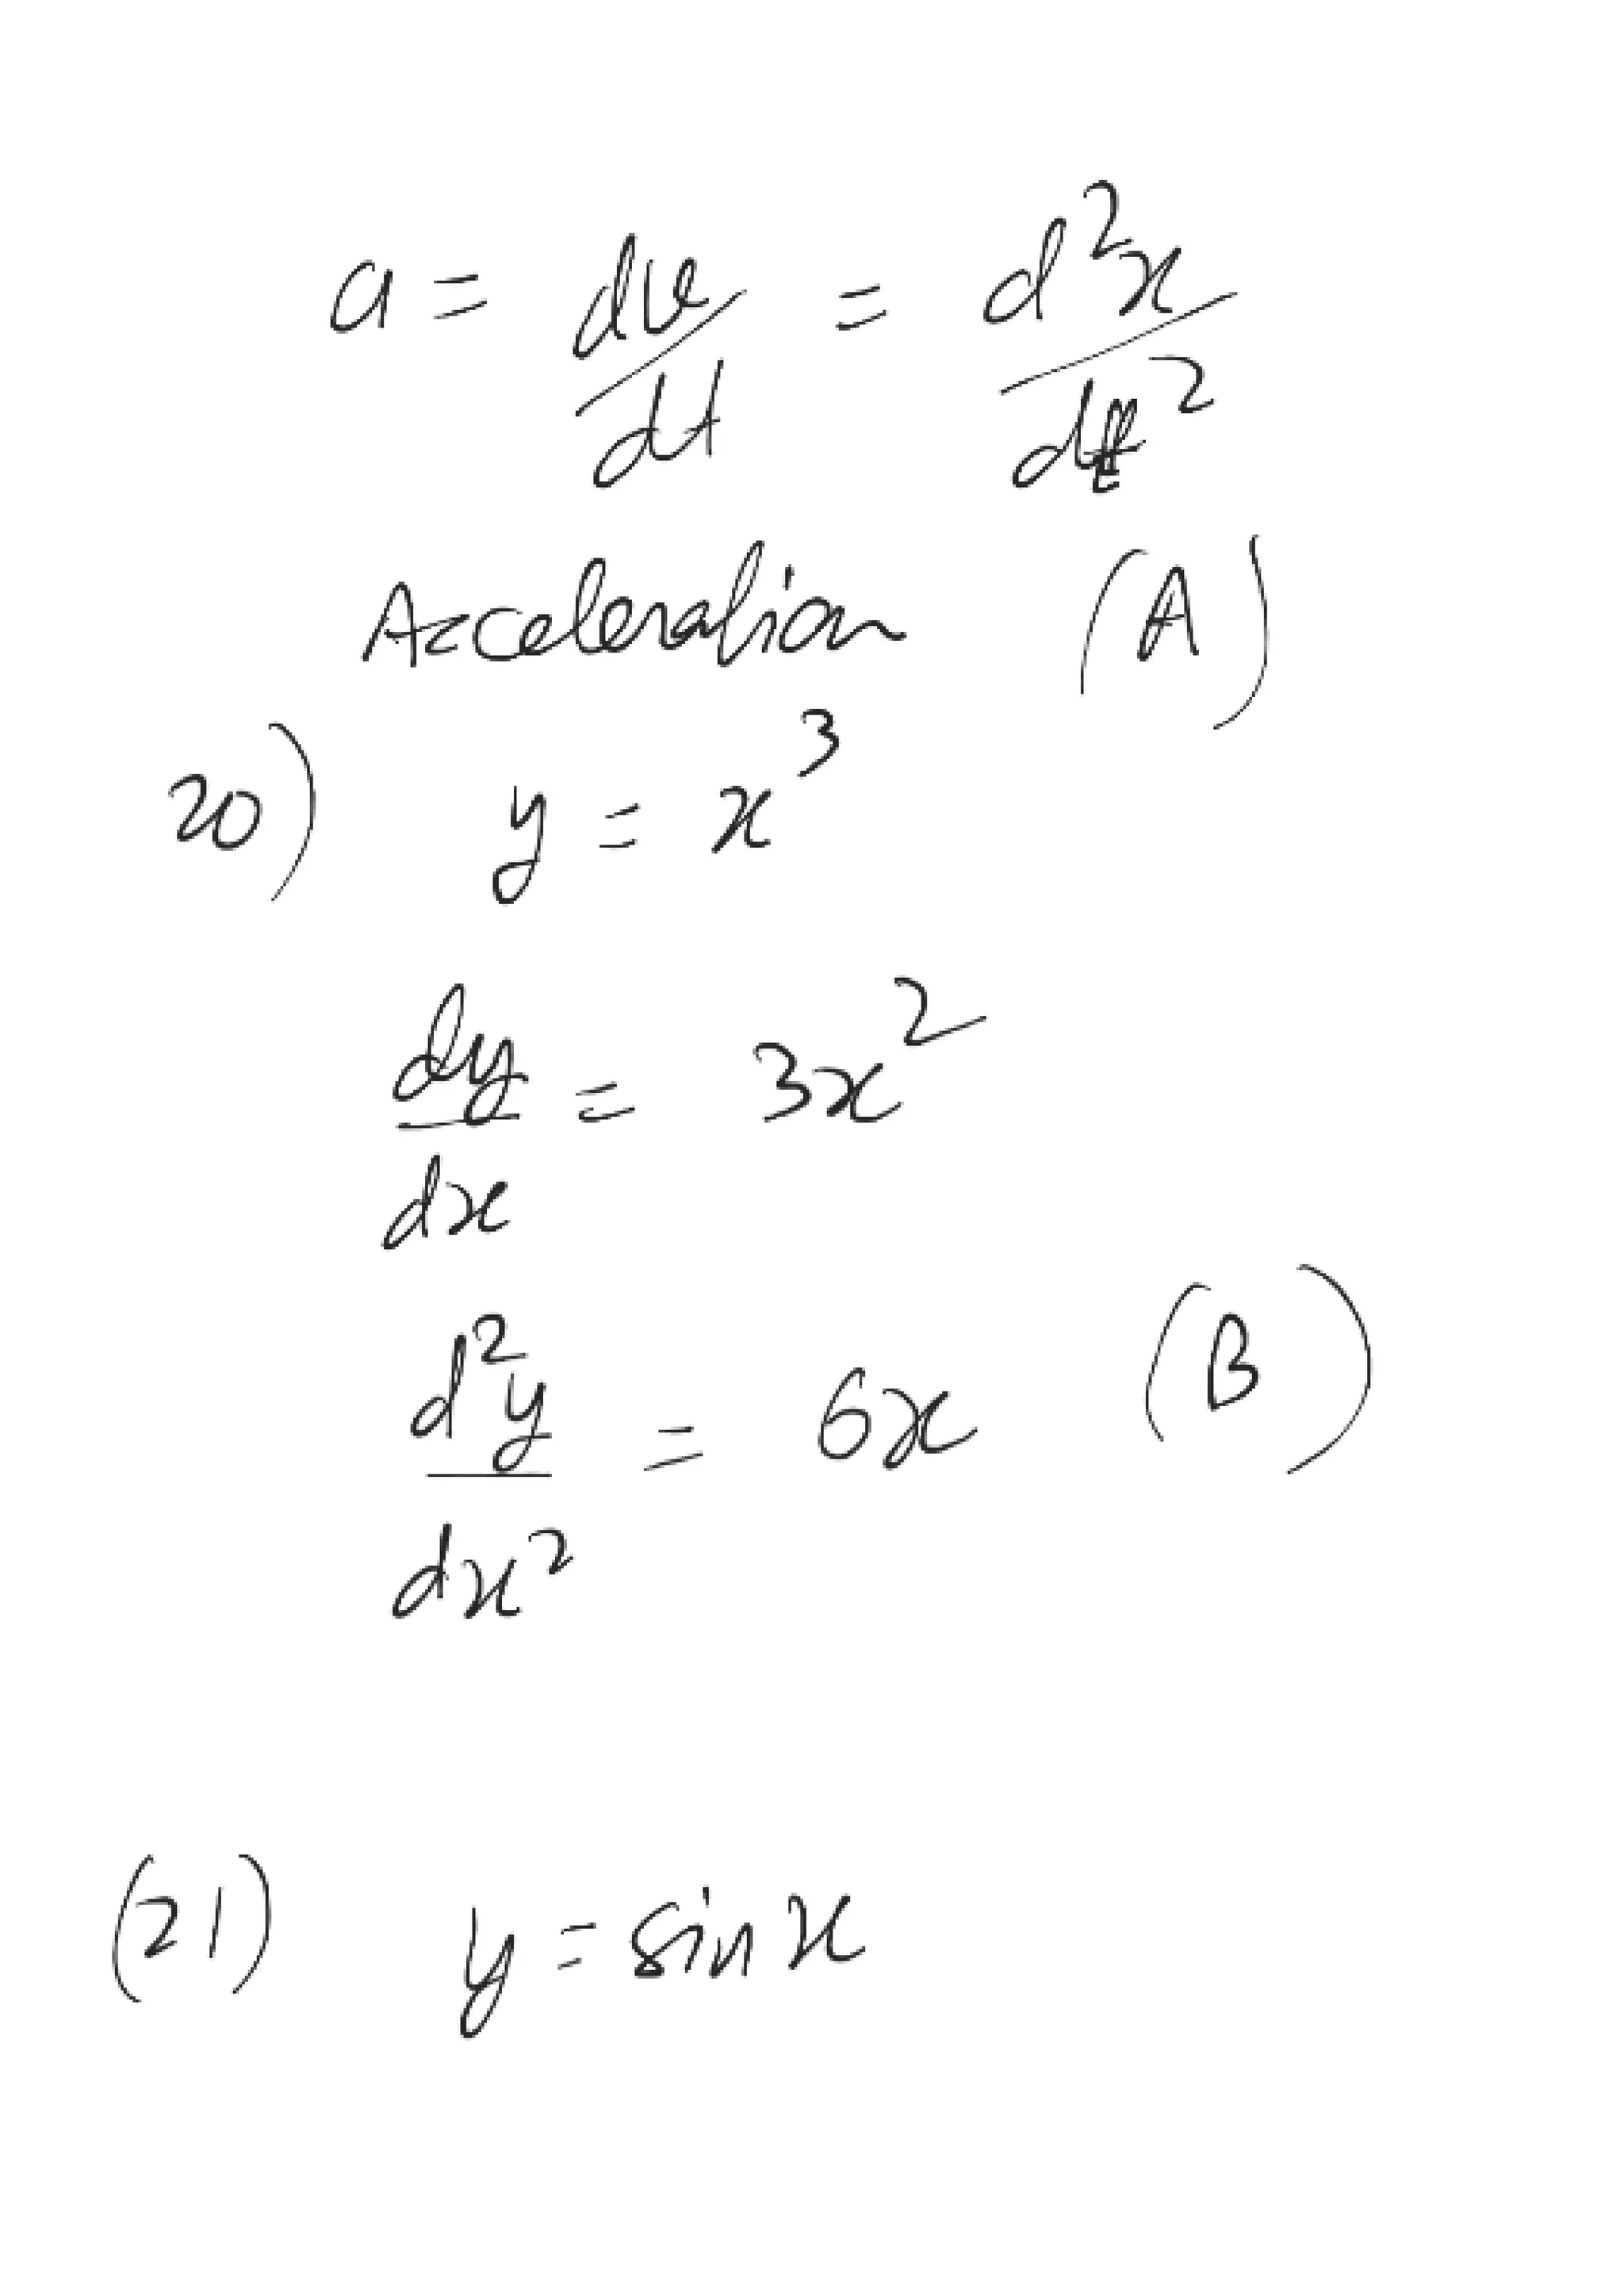 a = dv/dt = d²x/dt²
Acceleration (A)
20) y = x³
dy/dx = 3x²
d²y/dx² = 6x (B)
(21) y = sin x